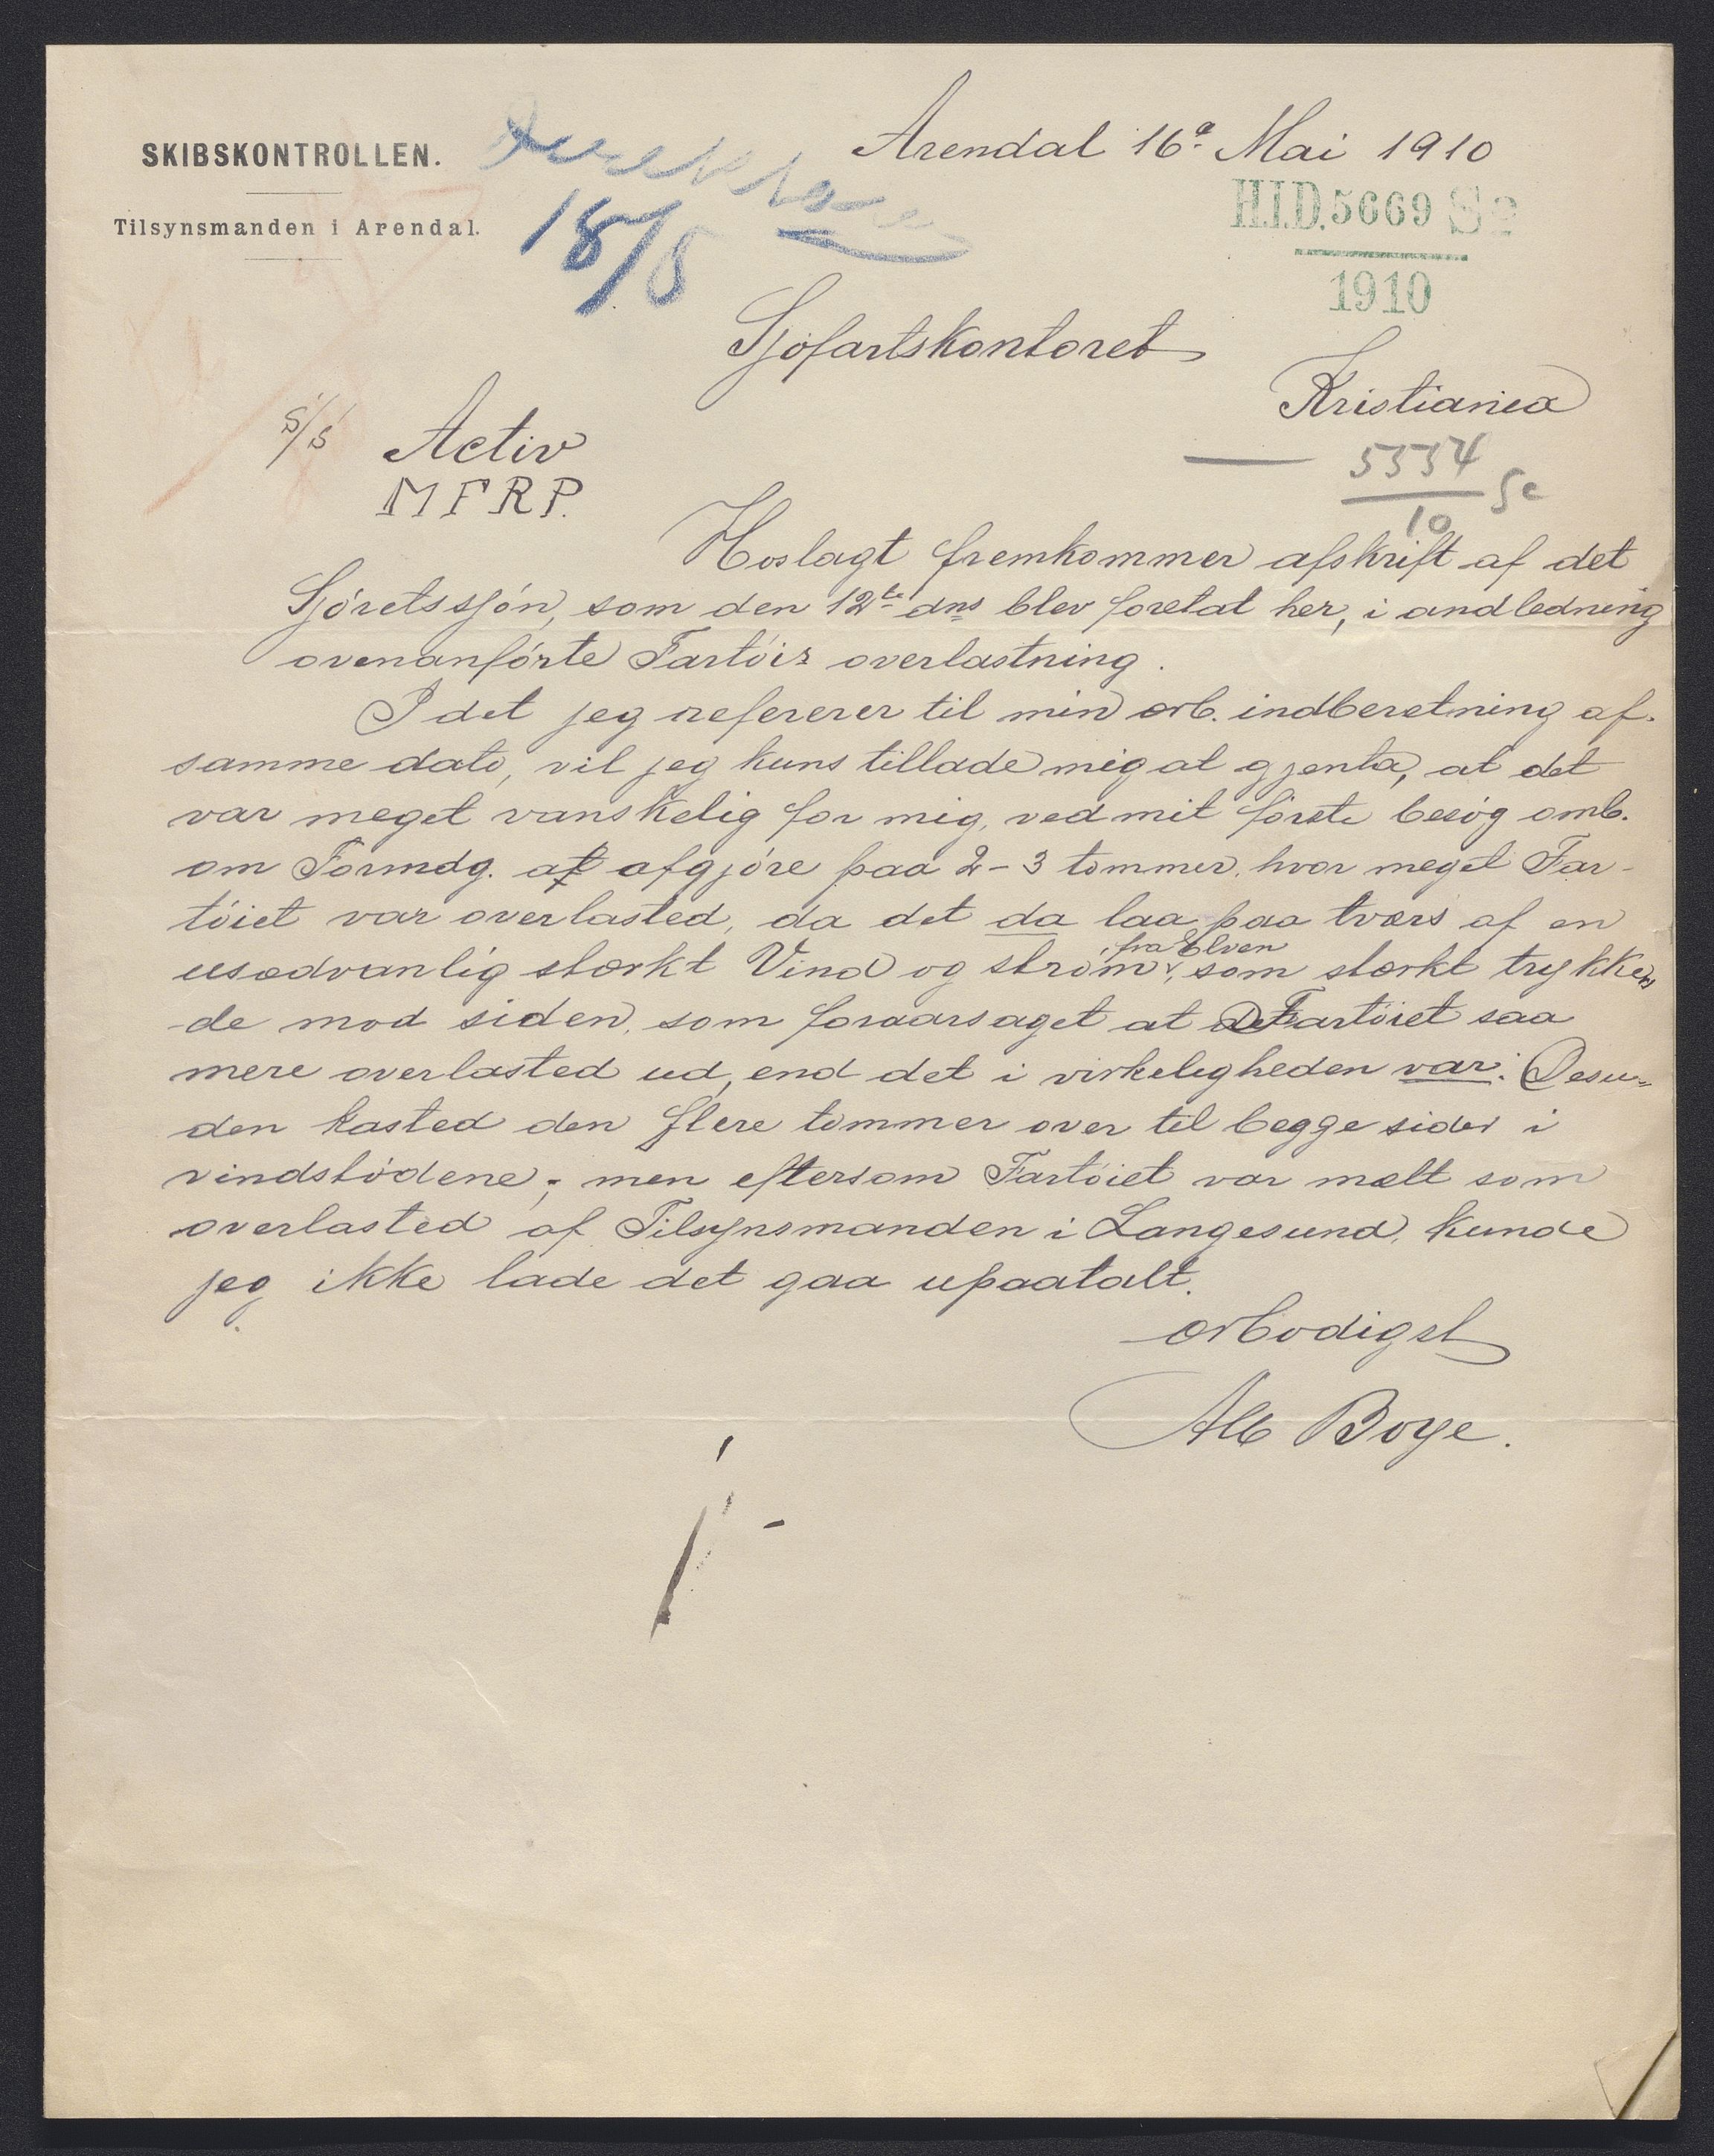 SKIBSKONTROLLEN.
Tilsynsmanden i Arendal.
18/5
Arendal 16d Mai 1910
H.I.D. 5669 Se
1910
Sjøfartskontoret
Kristiania
5334 Se
10
S/S Activ
M F R P.
Hoslagt fremkommer afskrift af det
Sjøretssjøn, som den 12te dns blev foretat her, i andledning
ovenanførte Fartøis overlastning.
I det jeg refererer til min ærb. indberetning af
samme dato, vil jeg kuns tillade mig at gjenta, at det
var meget vanskelig for mig, ved mit første besøg omb.
om Formdg. at afgjøre paa 2-3 tommer, hvor meget Far-
tøiet var overlasted, da det da laa paa tværs af en
usædvanlig stærkt Vind og strøm fra Elven, som stærkt trykken
de mod siden, som foraarsaget at Fartøiet saa
mere overlasted ud, end det i virkeligheden var. Desu-
den kasted den flere tommer over til begge sider i
vindstødene; men eftersom Fartøiet var mælt som
overlasted af Tilsynsmanden i Langesund, kunde
jeg ikke lade det gaa upaatalt.
ærbødigst
Alb Boye.